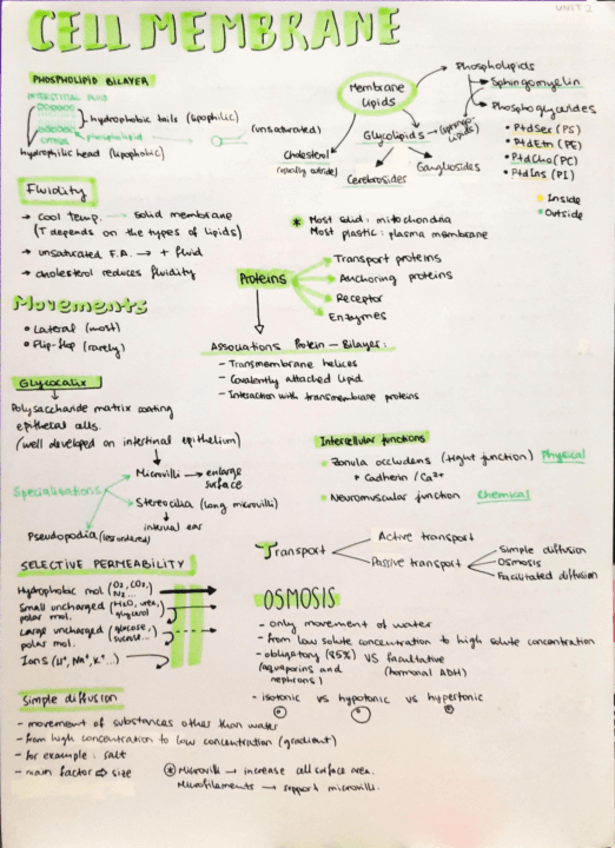 UNIT 2
CELL MEMBRANE
PHOSPHOLIPID BILAYER
INTERSTITIAL FLUID
hydrophobic tails (lipophilic)
phospholipid
(unsaturated)
CYTOSOL
hydrophilic head (lipophobic)
Membrane
lipids
Phospholipids
Sphingomyelin
Phosphoglycerides
• PtdSer (PS)
• PtdEtn (PE)
• PtdCho (PC)
• PtdIns (PI)
Inside
Outside
Glycolipids → (sphingo-
lipids)
Cholesterol
(usually outside)
Cerebrosides
Gangliosides
Fluidity
→ cool temp. → solid membrane
(T depends on the types of lipids)
→ unsaturated F.A. → + fluid
→ cholesterol reduces fluidity
* Most solid: mitochondria
Most plastic: plasma membrane
Proteins
Transport proteins
Anchoring proteins
Receptor
Enzymes
Movements
• Lateral (most)
• Flip-flop (rarely)
Associations Protein - Bilayer:
- Transmembrane helices
- Covalently attached lipid
- Interaction with transmembrane proteins
Glycocalix
Polysaccharide matrix coating
epithelial cells.
(well developed on intestinal epithelium)
Specializations
Microvilli → enlarge
surface
Stereocilia (long microvilli)
internal ear
Pseudopodia (less ordered)
Intercellular junctions
Zonula occludens (tight junction) Physical
+ Cadherin / Ca²⁺
Neuromuscular junction Chemical
Transport
Active transport
Passive transport
Simple diffusion
Osmosis
Facilitated diffusion
SELECTIVE PERMEABILITY
Hydrophobic mol. (O₂, CO₂,)
N₂...
Small uncharged (H₂O, urea,
polar mol. glycerol
Large uncharged (glucose,)
polar mol. sucrose...
Ions (H⁺, Na⁺, K⁺...)
OSMOSIS
- only movement of water
- from low solute concentration to high solute concentration
- obligatory (85%) VS facultative
(aquaporins and (hormonal ADH)
nephrons)
- isotonic vs hypotonic vs hypertonic
Simple diffusion
- movement of substances other than water
- from high concentration to low concentration (gradient)
- for example: salt
- main factor ⇨ size
* Microvilli → increase cell surface area.
Microfilaments → support microvilli.